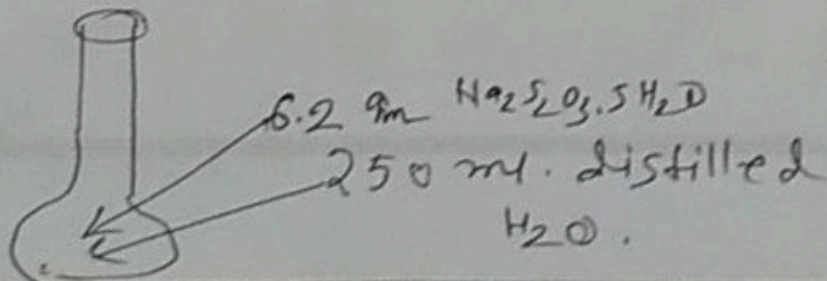 6.2 gm Na2S2O3.5H2O
250 ml. distilled
H2O.